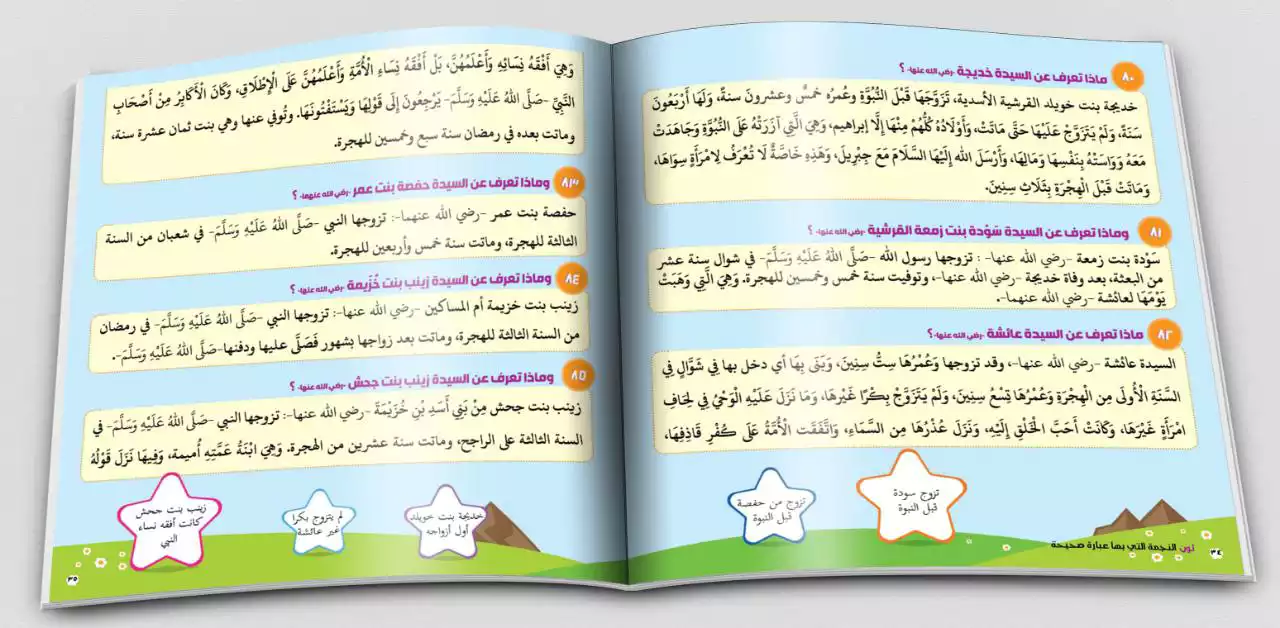 ٨٠ ماذا تعرف عن السيدة خديجة -رضي الله عنها- ؟
خديجة بنت خويلد القرشية الأسدية، تَزَوَّجَهَا قَبْلَ النُّبُوَّةِ وعُمرُه خمسٌ وعشرونَ سنةً، وَلَهَا أَرْبَعُونَ
سَنَةً، وَلَمْ يَتَزَوَّجْ عَلَيْهَا حَتَّى مَاتَتْ، وَأَوْلَادُهُ كُلُّهُمْ مِنْهَا إِلَّا إبراهيم، وَهِيَ الَّتِي آزَرَتْهُ عَلَى النُّبُوَّةِ وَجَاهَدَتْ
مَعَهُ وَوَاسَتْهُ بِنَفْسِهَا وَمَالِهَا، وَأَرْسَلَ الله إِلَيْهَا السَّلَامَ مَعَ جِبْرِيلَ، وَهَذِهِ خَاصَّةٌ لَا تُعْرَفُ لِامْرَأَةٍ سِوَاهَا،
وَمَاتَتْ قَبْلَ الْهِجْرَةِ بِثَلَاثِ سِنِينَ.
٨١ وماذا تعرف عن السيدة سَوْدة بنت زمعة القرشية -رضي الله عنها- ؟
سَوْدة بنت زمعة -رضي الله عنها- : تزوجها رسول الله -صَلَّى اللهُ عَلَيْهِ وَسَلَّمَ- في شوال سنة عشر
من البعثة، بعد وفاة خديجة -رضي الله عنها-، وتوفيت سنة خمس وخمسين للهجرة. وَهِيَ الَّتِي وَهَبَتْ
يَوْمَهَا لعائشة -رضي الله عنهما-.
٨٢ ماذا تعرف عن السيدة عائشة -رضي الله عنها-؟
السيدة عائشة -رضي الله عنها-، وقد تزوجها وَعُمْرُهَا سِتُّ سِنِينَ، وَبَنَى بِهَا أي دخل بها في شَوَّالٍ فِي
السَّنَةِ الْأُولَى مِن الْهِجْرَةِ وَعُمْرُهَا تِسْعُ سِنِينَ، وَلَمْ يَتَزَوَّجْ بِكْرًا غَيْرَهَا، وَمَا نَزَلَ عَلَيْهِ الْوَحْيُ فِي لِحَافِ
امْرَأَةٍ غَيْرَهَا، وَكَانَتْ أَحَبَّ الْخَلْقِ إِلَيْهِ، وَنَزَلَ عُذْرُهَا مِن السَّمَاءِ، وَاتَّفَقَت الْأُمَّةُ عَلَى كُفْرِ قَاذِفِهَا،
تزوج سودة
قبل النبوة
تزوج من حفصة
قبل النبوة
لون النجمة التي بها عبارة صحيحة
٣٤
وَهِيَ أَفْقَهُ نِسَائِهِ وَأَعْلَمُهُنَّ، بَلْ أَفْقَهُ نِسَاءِ الْأُمَّةِ وَأَعْلَمُهُنَّ عَلَى الْإِطْلَاقِ، وَكَانَ الْأَكَابِرُ مِنْ أَصْحَابِ
النَّبِيِّ -صَلَّى اللهُ عَلَيْهِ وَسَلَّمَ- يَرْجِعُونَ إِلَى قَوْلِهَا وَيَسْتَفْتُونَهَا. وتُوفي عنها وهي بنت ثمان عشرة سنة،
وماتت بعده في رمضان سنة سبع وخمسين للهجرة.
٨٣ وماذا تعرف عن السيدة حفصة بنت عمر -رضي الله عنهما- ؟
حفصة بنت عمر -رضي الله عنهما-: تزوجها النبي -صَلَّى اللهُ عَلَيْهِ وَسَلَّمَ- في شعبان من السنة
الثالثة للهجرة، وماتت سنة خمس وأربعين للهجرة.
٨٤ وماذا تعرف عن السيدة زينب بنت خُزَيمة -رضي الله عنها- ؟
زينب بنت خزيمة أم المساكين -رضي الله عنها-: تزوجها النبي -صَلَّى اللهُ عَلَيْهِ وَسَلَّمَ- في رمضان
من السنة الثالثة للهجرة، وماتت بعد زواجها بشهور فَصَلَّى عليها ودفنها-صَلَّى اللهُ عَلَيْهِ وَسَلَّمَ-.
٨٥ وماذا تعرف عن السيدة زينب بنت جحش -رضي الله عنها- ؟
زينب بنت جحش مِنْ بَنِي أَسَدِ بْنِ خُزَيْمَةَ -رضي الله عنها-: تزوجها النبي -صَلَّى اللهُ عَلَيْهِ وَسَلَّمَ- في
السنة الثالثة على الراجح، وماتت سنة عشرين من الهجرة. وَهِيَ ابْنَةُ عَمَّتِهِ أُميمة، وَفِيهَا نَزَلَ قَوْلُهُ
خديجة بنت خويلد
أول أزواجه
لم يتزوج بكرا
غير عائشة
زينب بنت جحش
كانت أفقه نساء
النبي
٣٥